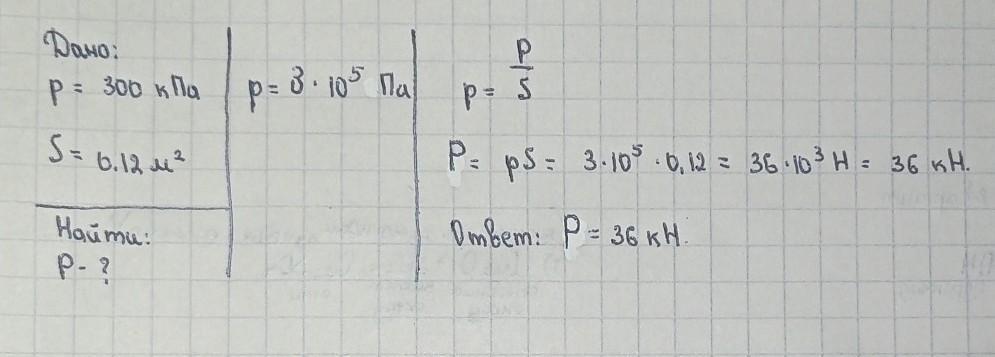 Дано:
p = 300 кПа
S = 0.12 м²
Найти:
P - ?
p = 3 · 10⁵ Па
p = P/S
P = pS = 3·10⁵ · 0,12 = 36·10³ Н = 36 кН.
Ответ: P = 36 кН.